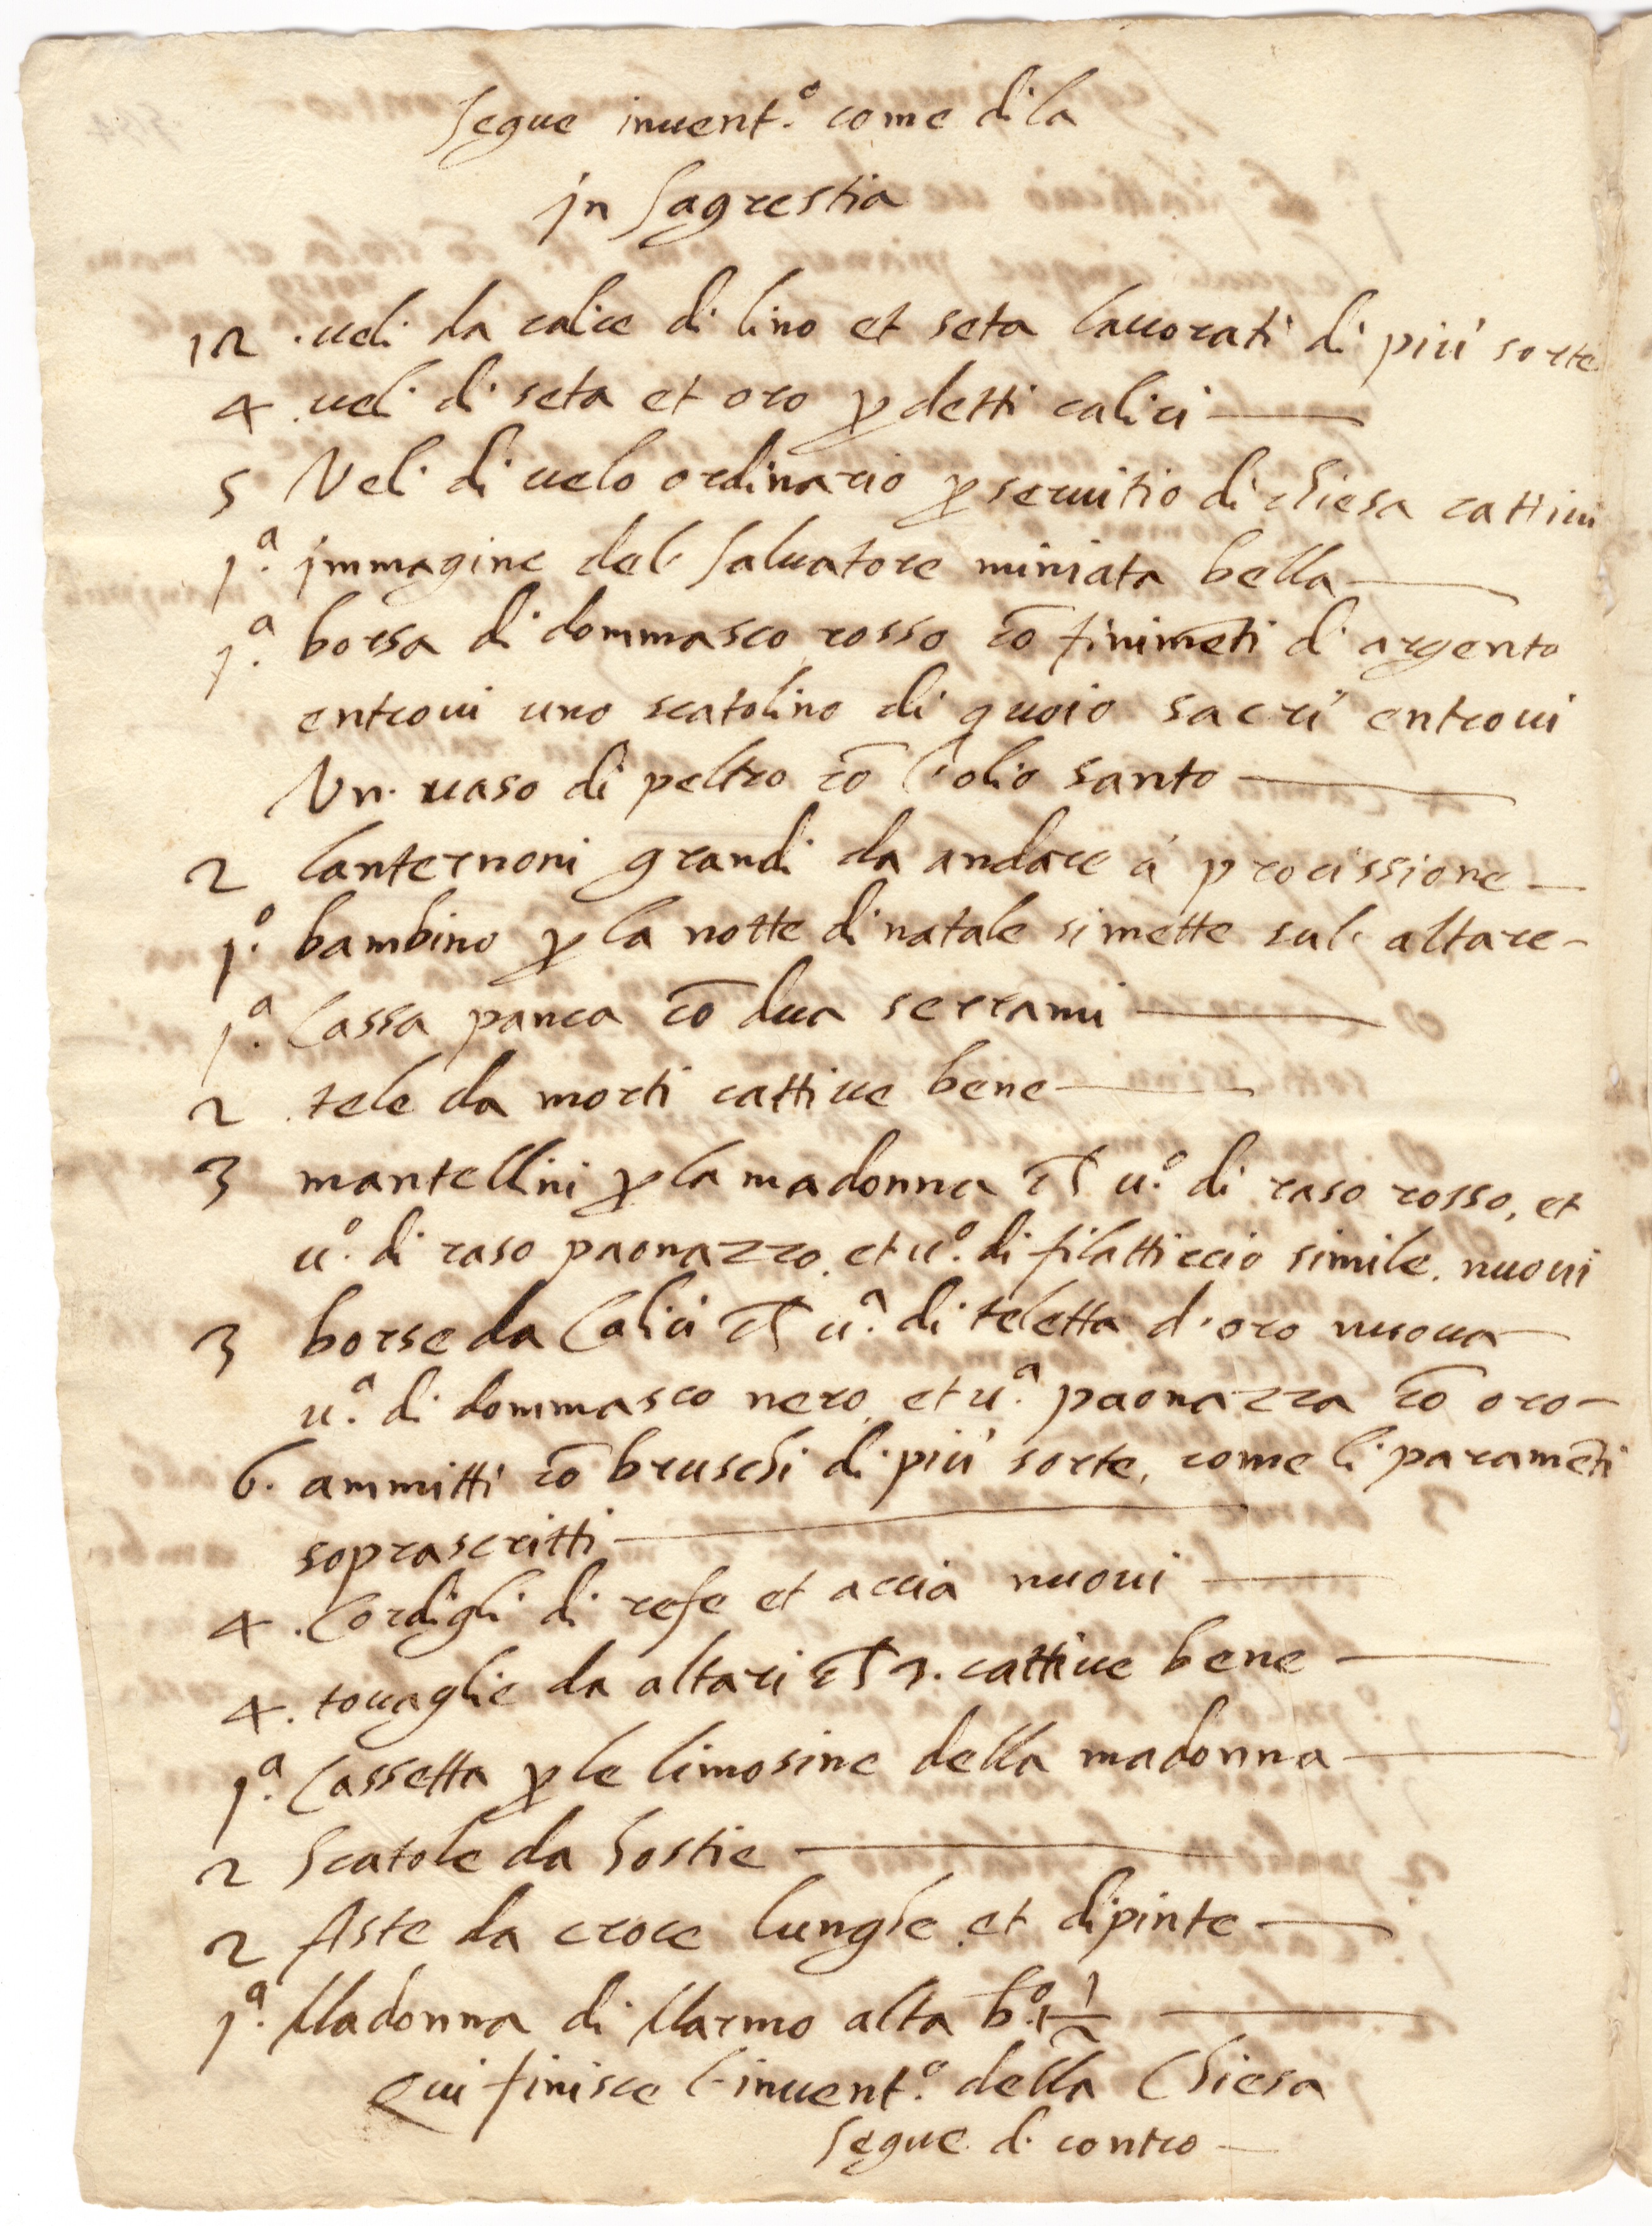 Segue inuent.º come di la
jn Sagrestia
12 . ueli da calice di lino et seta lauorati di più sorte
4 . ueli di seta et oro ꝑ detti calici —
5 Veli di uelo ordinario ꝑ seruitio di chiesa cattiui
1.ª jmmagine del Saluatore miniata bella —
1.ª borsa di dommasco rosso cō finimēti d'argento
entroui uno scatolino di quoio sacri entroui
Un uaso di peltro cō l'olio santo —
2 lanternoni grandi da andare à procissione —
1.º bambino ꝑ la notte di natale si mette sul altare —
1.ª Cassa panca cō dua serrami —
2 tele da morti cattiue bene —
3 mantellini ꝑ la madonna u.º di raso rosso, et
u.º di raso paonazzo, et u.º di filatticcio simile. nuoui
3 borse da Calici u.ª di teletta d'oro nuoua —
u.ª di dommasco nero, et u.ª paonazza cō oro —
6. ammitti cō bruschi di più sorte, come li paramēti
soprascritti —
4 . Cordigli di refe et accia nuoui —
4. touaglie da altari cattiue bene —
1.ª Cassetta ꝑ le limosine della madonna —
2 Scatole da hostie —
2 Aste da croce lunghe et dipinte —
1.ª Madonna di Marmo alta b.º 1 1/2 —
Qui finisce l'inuent.º della Chiesa
Segue di contro —